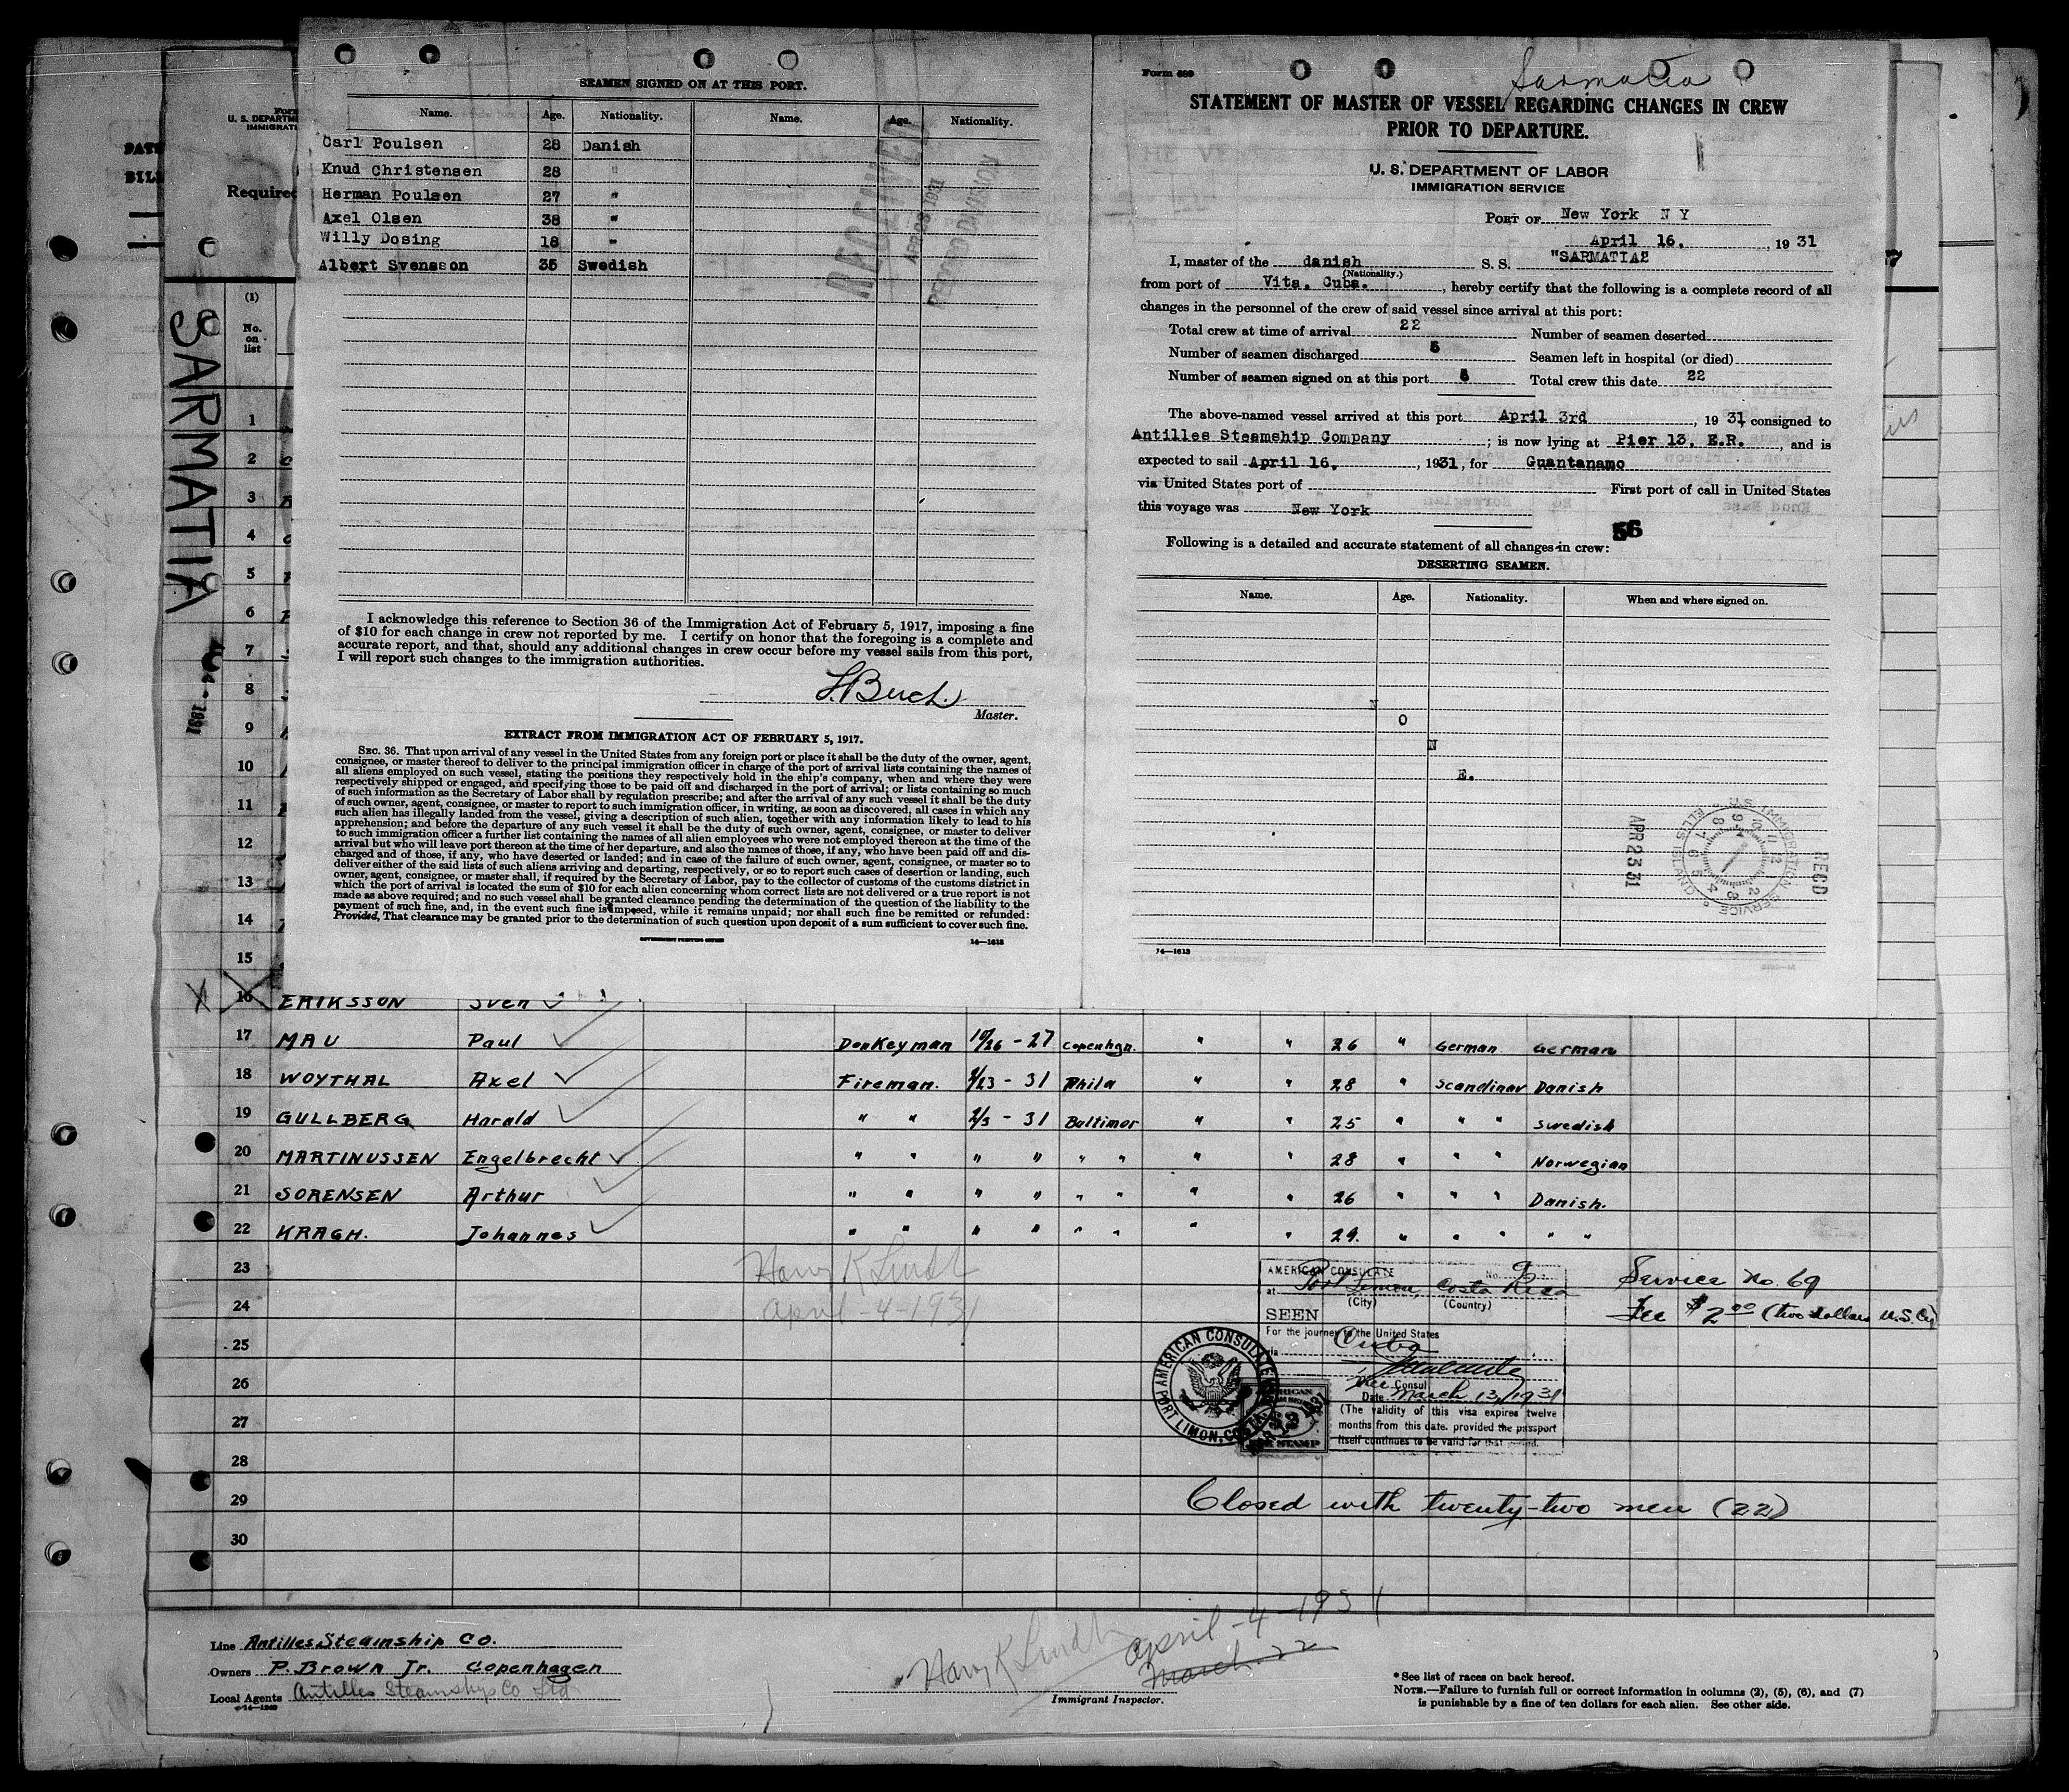 SEAMEN SIGNED ON AT THIS PORT.
Name. Age. Nationality. Name. Age. Nationality.
Carl Poulsen 28 Danish
Knud Christensen 28 "
Herman Poulsen 27 "
Axel Olsen 38 "
Willy Dosing 18 "
Albert Svensson 35 Swedish
RECEIVED
RECORD DIVISION
I acknowledge this reference to Section 36 of the Immigration Act of February 5, 1917, imposing a fine
of $10 for each change in crew not reported by me. I certify on honor that the foregoing is a complete and
accurate report, and that, should any additional changes in crew occur before my vessel sails from this port,
I will report such changes to the immigration authorities.
Master.
EXTRACT FROM IMMIGRATION ACT OF FEBRUARY 5, 1917.
SEC. 36. That upon arrival of any vessel in the United States from any foreign port or place it shall be the duty of the owner, agent,
consignee, or master thereof to deliver to the principal immigration officer in charge of the port of arrival lists containing the names of
all aliens employed on such vessel, stating the positions they respectively hold in the ship's company, when and where they were
respectively shipped or engaged, and specifying those to be paid off and discharged in the port of arrival; or lists containing so much
of such information as the Secretary of Labor shall by regulation prescribe; and after the arrival of any such vessel it shall be the duty
of such owner, agent, consignee, or master to report to such immigration officer, in writing, as soon as discovered, all cases in which any
such alien has illegally landed from the vessel, giving a description of such alien, together with any information likely to lead to his
apprehension; and before the departure of any such vessel it shall be the duty of such owner, agent, consignee, or master to deliver
to such immigration officer a further list containing the names of all alien employees who were not employed thereon at the time of the
arrival but who will leave port thereon at the time of her departure, and also the names of those, if any, who have been paid off and dis-
charged and of those, if any, who have deserted or landed; and in case of the failure of such owner, agent, consignee, or master so to
deliver either of the said lists of such aliens arriving and departing, respectively, or so to report such cases of desertion or landing, such
owner, agent, consignee, or master shall, if required by the Secretary of Labor, pay to the collector of customs of the customs district in
which the port of arrival is located the sum of $10 for each alien concerning whom correct lists are not delivered or a true report is not
made as above required; and no such vessel shall be granted clearance pending the determination of the question of the liability to the
payment of such fine, and, in the event such fine is imposed, while it remains unpaid; nor shall such fine be remitted or refunded:
Provided, That clearance may be granted prior to the determination of such question upon deposit of a sum sufficient to cover such fine.
GOVERNMENT PRINTING OFFICE 14—1613
Form 689
Sarmatia
STATEMENT OF MASTER OF VESSEL REGARDING CHANGES IN CREW
PRIOR TO DEPARTURE.
U. S. DEPARTMENT OF LABOR
IMMIGRATION SERVICE
PORT OF New York N Y
April 16, 1931
I, master of the danish S. S. "SARMATIA"
(Nationality.)
from port of Vita. Cuba. , hereby certify that the following is a complete record of all
changes in the personnel of the crew of said vessel since arrival at this port:
Total crew at time of arrival 22 Number of seamen deserted
Number of seamen discharged Seamen left in hospital (or died)
Number of seamen signed on at this port Total crew this date 22
The above-named vessel arrived at this port April 3rd , 1931, consigned to
Antilles Steamship Company ; is now lying at Pier 13, E.R. , and is
expected to sail April 16, , 1931, for Guantanamo
via United States port of First port of call in United States
this voyage was New York
56
Following is a detailed and accurate statement of all changes in crew:
DESERTING SEAMEN.
Name. Age. Nationality. When and where signed on.
N
O
N
E.
U. S. IMMIGRATION SERVICE
ELLIS ISLAND
REC'D
APR 23 31
14—1613
U. S. DEPARTM
IMMIGRATI
Required
SARMATIA
(1)
No.
on
list
1
2
3
4
5
6
7
8
9
10
11
12
13
14
15
16 ERIKSSON Sven
17 MAU Paul Donkeyman 10/26 - 27 Copenhgn. " " 26 " German German
18 WOYTHAL Axel Fireman. 2/23 - 31 Phila " " 28 " Scandinav Danish
19 GULLBERG Harald " " 2/3 - 31 Baltimor " " 25 " " " Swedish
20 MARTINUSSEN Engelbrecht " " " " " " " " 28 " " " Norwegian
21 SORENSEN Arthur " " " " " " " " 26 " " " Danish.
22 KRAGH. Johannes " " " " " " " " 29. " " " " "
23
24
25
26
27
28
29
30
Harry K Lindh
April-4-1931
AMERICAN CONSULATE No. 9
at Port Limon, Costa Rica
(City) (Country)
SEEN
For the journey to the United States
via Cuba
Vice Consul
Date March 13, 1931
(The validity of this visa expires twelve
months from this date, provided the passport
itself continues to be valid for that period.
AMERICAN CONSULATE
PORT LIMON, COSTA RICA
Service No. 69
Fee $2.00 (two dollars U.S.Cy)
Closed with twenty-two men (22)
Line Antilles Steamship Co.
Owners P. Brown Jr. Copenhagen
Local Agents Antilles Steamship Co Ltd
14—1240
Harry K Lindh April-4-1931
March 22
Immigrant Inspector.
*See list of races on back hereof.
NOTE.—Failure to furnish full or correct information in columns (2), (5), (6), and (7)
is punishable by a fine of ten dollars for each alien. See other side.